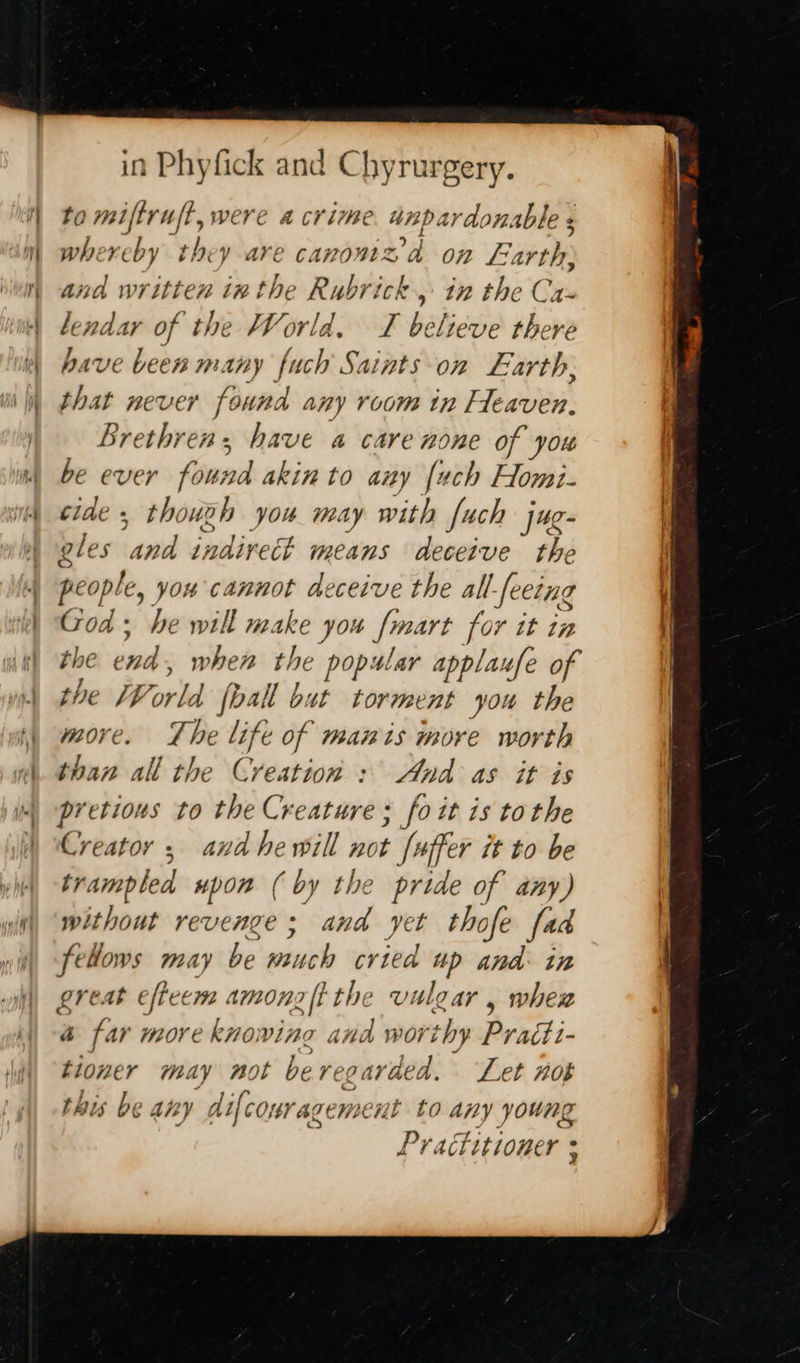 in Phyſick and Chyrurgery.
to miſtruſt, were a crime unpardonable;
whereby they are canoniz'd on Earth,
and written in the Rubrick, in the Ca-
lendar of the World. I believe there
have been many ſuch Saints on Earth,
that never found any room in Heaven.
Brethren, have a care none of you
be ever found akin to any ſuch Homi-
cide; though you may with ſuch jug-
gles and indirect means deceive the
people, you cannot deceive the all-ſeeing
God; he will make you ſmart for it in
the end, when the popular applauſe of
the World ſhall but torment you the
more. The life of man is more worth
than all the Creation: And as it is
pretious to the Creature; ſo it is to the
Creator; and he will not ſuffer it to be
trampled upon (by the pride of any)
without revenge; and yet thoſe ſad
fellows may be much cried up and in
great eſteem amongſt the vulgar, when
a far more knowing and worthy Practi-
tioner may not be regarded. Let not
this be any diſcouragement to any young
Practitioner;